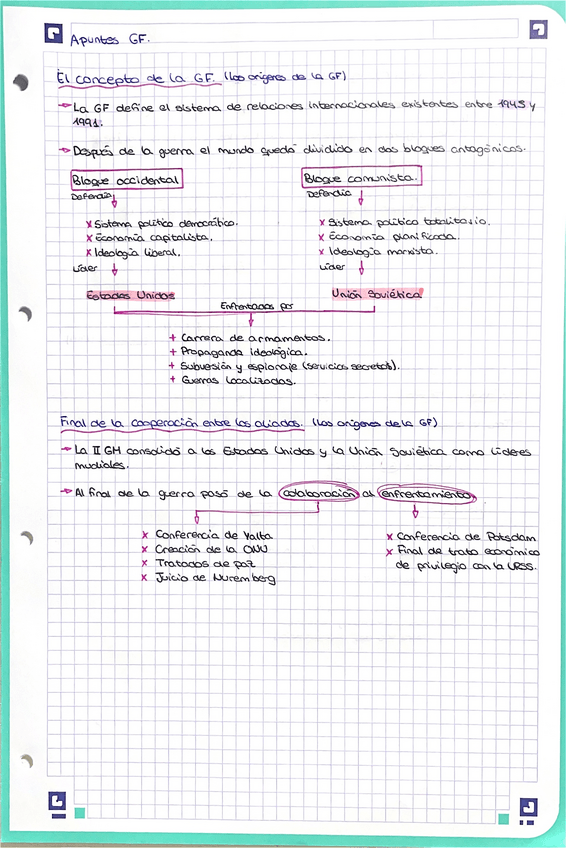 Apuntes GF.
El concepto de la GF. (Los orígenes de la GF)
La GF define el sistema de relaciones internacionales existentes entre 1945 y
1991.
Después de la guerra el mundo quedó dividido en dos bloques antagónicos.
Bloque occidental Bloque comunista.
Defendía Defendía
x Sistema político democrático. x Sistema político totalitario.
x Economía capitalista. x Economía planificada.
x Ideología liberal. x Ideología marxista.
Líder Líder
Estados Unidos Unión Soviética
Enfrentados por
+ Carrera de armamentos.
+ Propaganda ideológica.
+ Subversión y espionaje (servicios secretos).
+ Guerras localizadas.
Final de la cooperación entre los aliados. (Los orígenes de la GF)
La II GM consolidó a los Estados Unidos y la Unión Soviética como líderes
mudiales.
Al final de la guerra pasó de la colaboración al enfrentamiento
x Conferencia de Yalta x Conferencia de Potsdam
x Creación de la ONU x Final de trato económico
x Tratados de paz de privilegio con la URSS.
x Juicio de Nuremberg